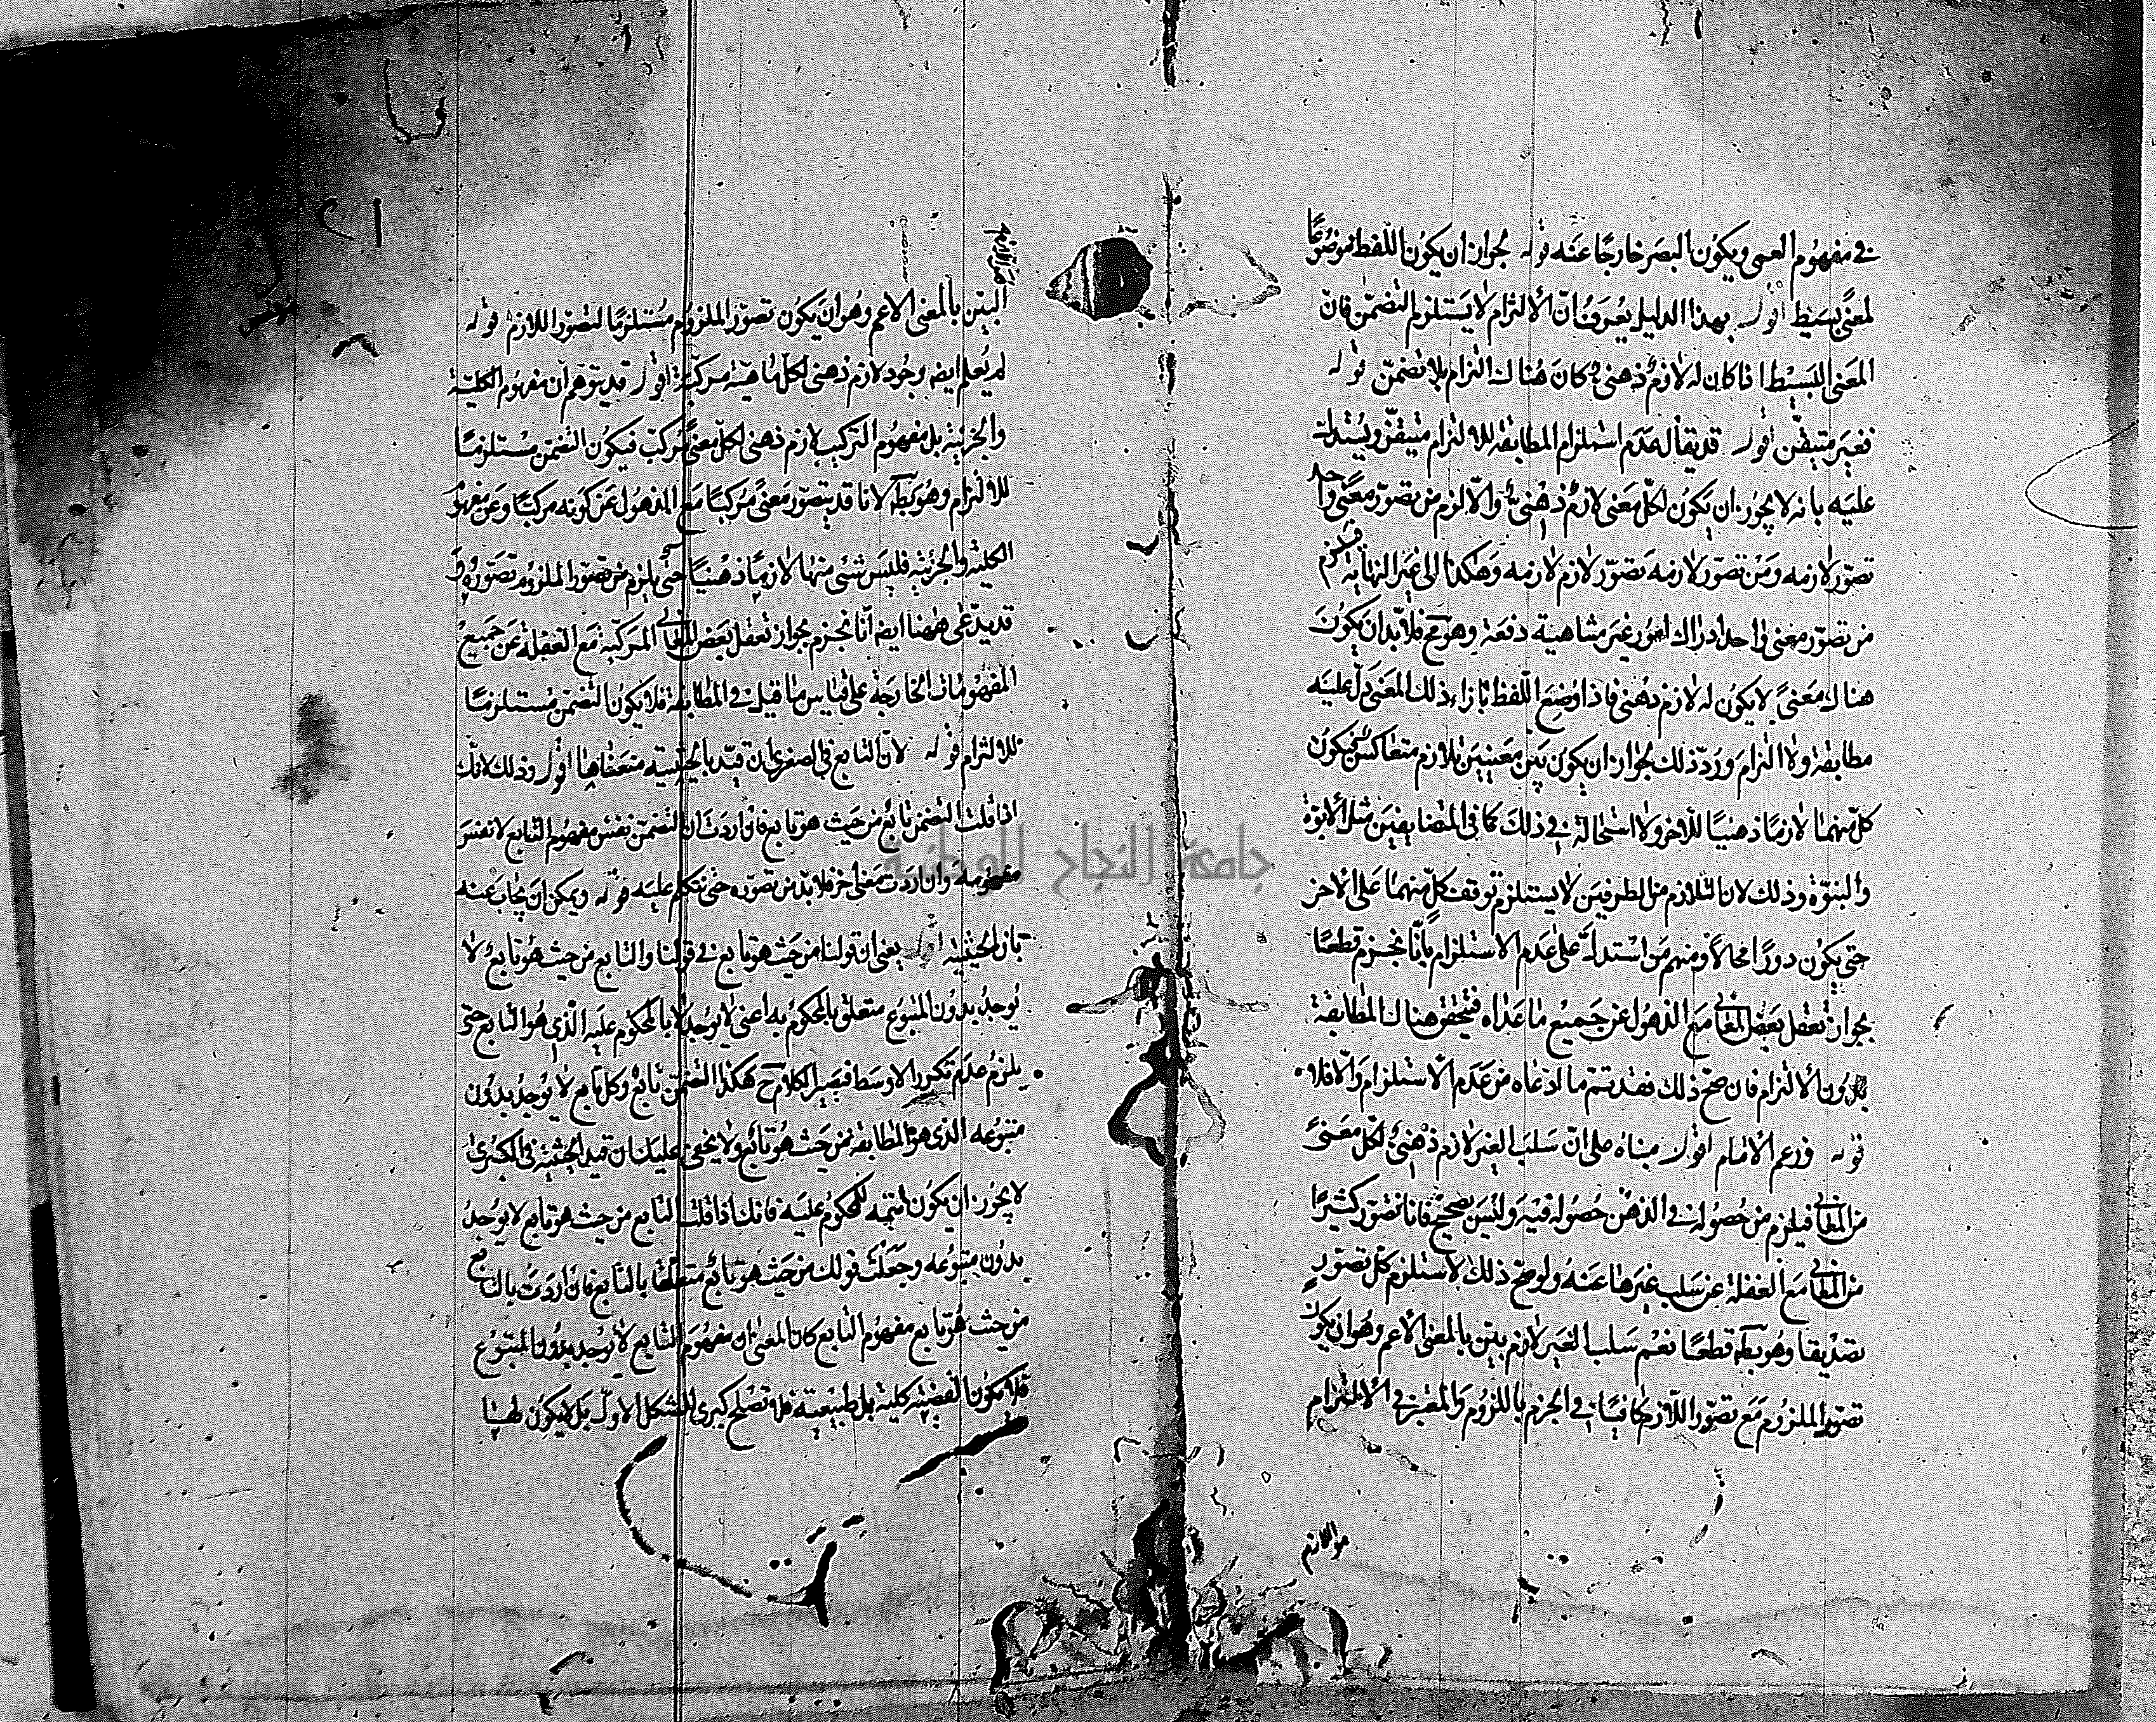 في مفهوم العمى ويكون البصر خارجا عنه قوله لجواز ان يكون اللفظ موضوعا
لمعنى بسيط اقول بهذا الدليل يعرف ان الالتزام لا يستلزم التضمن فان
المعنى البسيط اذا كان له لازم ذهني كان هناك التزام بلا تضمن قوله
فغير متيقن اقول قد يقال عدم استلزام المطابقة للالتزام متيقن ويستدل
عليه بانه لا يجوز ان يكون لكل معنى لازم ذهني والا لزم من تصور معنى واحد
تصور لازمه ومن تصور لازمه تصور لازم لازمه وهكذا الى غير النهاية فلزم
من تصور معنى واحد ادراك امور غير متناهية دفعة وهو مح فلا بد ان يكون
هناك معنى لا يكون له لازم ذهني فاذا وضع اللفظ بازاء ذلك المعنى دل عليه
مطابقة ولا التزام ورد ذلك لجواز ان يكون بين معنيين تلازم متعاكس فيكون
كل منهما لازما ذهنيا للاخر ولا استحالة في ذلك كما في المتضايفين مثل الابوة
والبنوة وذلك لان التلازم من الطرفين لا يستلزم توقف كل منهما على الاخر
حتى يكون دورا محالا ومنهم من استدل على عدم الاستلزام بانا نجزم قطعا
بجواز تعقل بعض المعاني مع الذهول عن جميع ما عداه فتحقق هناك المطابقة
بدون الالتزام فان صح ذلك فقد تم ما ادعاه من عدم الاستلزام والا فلا
قوله وزعم الامام اقول مبناه على ان سلب الغير لازم ذهني لكل معنى
من المعاني فيلزم من حصوله في الذهن حصوله فيه وليس بصحيح فانا نتصور كثيرا
من المعاني مع الغفلة عن سلب غيرها عنه ولو صح ذلك لاستلزم كل تصور
تصديقا وهو بط قطعا نعم سلب الغير لازم بين بالمعنى الاعم وهو ان يكون
تصور الملزوم مع تصور اللازم كافيا في الجزم باللزوم والمعتبر في الالتزام
هو اللازم
البين بالمعنى الاعم وهو ان يكون تصور الملزوم مستلزما لتصور اللازم قوله
لم يعلم ايضا وجود لازم ذهني لكل ماهية مركبة اقول قد يتوهم ان مفهوم الكلية
والجزئية بل مفهوم التركيب لازم ذهني لكل معنى مركب فيكون التضمن مستلزما
للالتزام وهو بط لانا قد نتصور معنى مركبا مع الذهول عن كونه مركبا وعن مفهوم
الكلية والجزئية فليس شئ منها لازما ذهنيا حتى يلزم من تصور الملزوم تصوره و
قد يدعى ههنا ايضا انا نجزم بجواز تعقل بعض المعاني المركبة مع الغفلة عن جميع
المفهومات الخارجة على قياس ما قيل في المطابقة فلا يكون التضمن مستلزما
للالتزام قوله لان التابع في الصغرى ان قيد بالحيثية منعناها اقول وذلك لانك
اذا قلت التضمن تابع من حيث هو تابع فان اردت ان التضمن نفس مفهوم التابع لا نفس
مفهومه وان اردت معنى اخر فلا بد من تصوره حتى نتكلم عليه قوله ويمكن ان يجاب عنه
بان الحيثية اقول يعني ان قولنا من حيث هو تابع في قولنا والتابع من حيث هو تابع لا
يوجد بدون المتبوع متعلق بالمحكوم به اعني لا يوجد لا بالمحكوم عليه الذي هو التابع حتى
يلزم عدم تكرر الاوسط فيصير الكلام ح هكذا التضمن تابع وكل تابع لا يوجد بدون
متبوعه الذي هو المطابقة من حيث هو تابع ولا يخفى عليك ان قيد الحيثية في الكبرى
لا يجوز ان يكون تتمه للمحكوم عليه فانك اذا قلت التابع من حيث هو تابع لا يوجد
بدون متبوعه وجعلت قولك من حيث هو تابع متعلقا بالتابع فان اردت بالتابع
من حيث هو تابع مفهوم التابع كان المعنى ان مفهوم التابع لا يوجد بدون المتبوع
فلا يكون القضية كلية بل طبيعية فلا تصلح كبرى للشكل الاول بل لا يكون لها
جامعة النجاح الوطنية